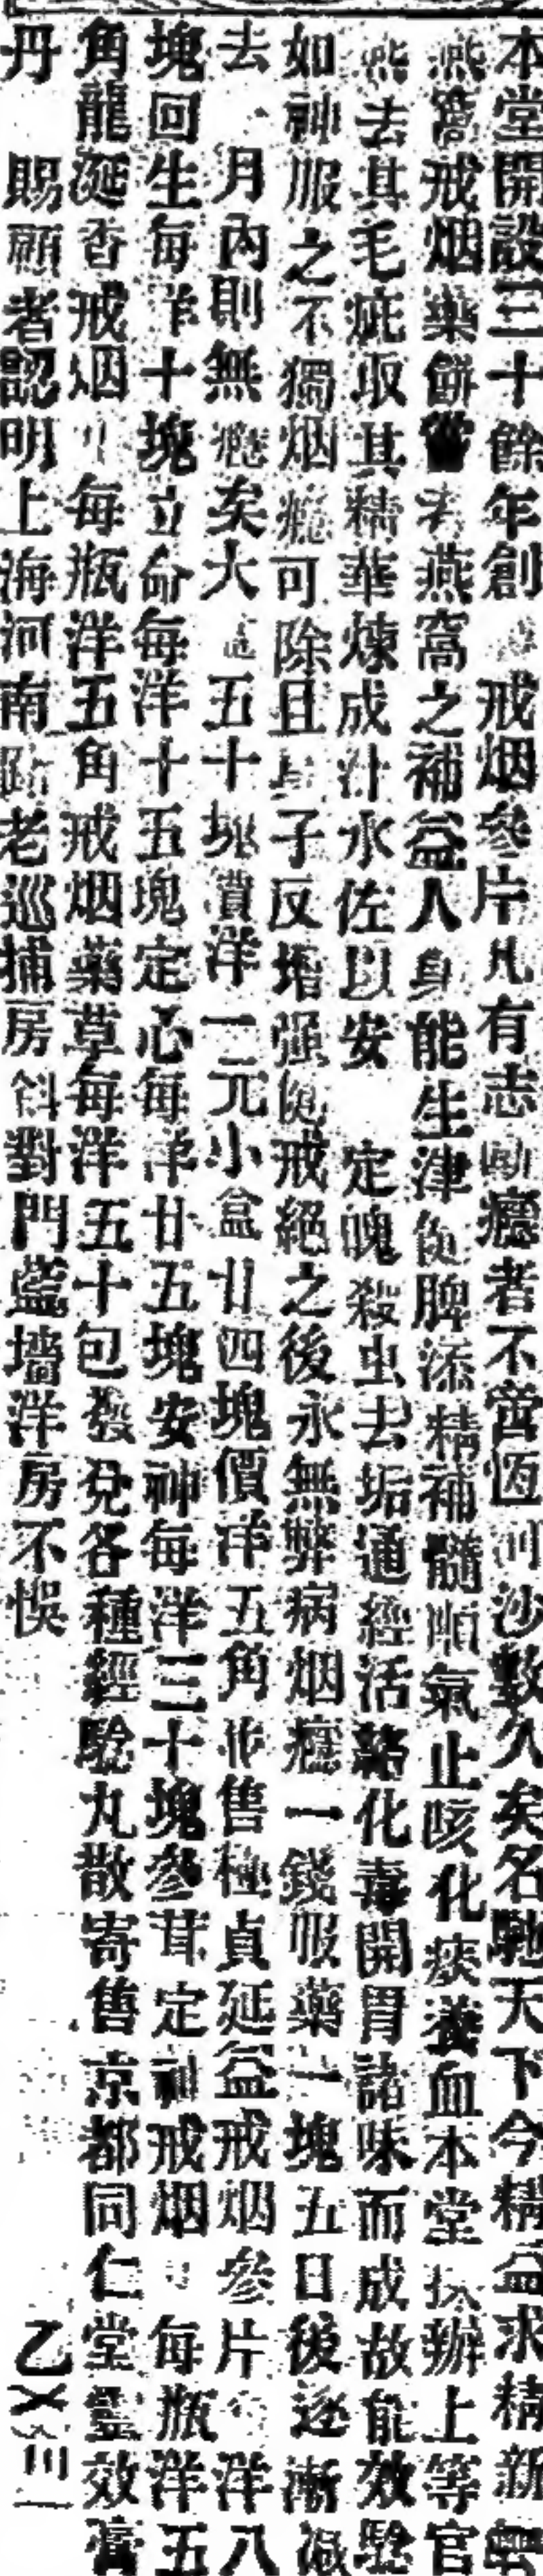 本堂開設三十餘年創戒烟參片凡有志斷癮者不啻恆河沙數久矣名馳天下今精益求精新
燕窩戒烟藥餅燕窩之補益人身能生津健脾添精補髓順氣止咳化痰養血本堂揀辦上等官
燕去其毛疵取其精華煉成汁水佐以安定魄殺虫去垢通經活絡化毒開胃諸味而成故能效騐
如神服之不獨烟癮可除且身子反增强健戒絕之後永無弊病烟癮一錢服藥一塊五日後逐漸減
去月內則無癮矣大盒五十塊賣洋一元小盒廿四塊價洋五角批售極貞延益戒烟參片洋八
塊回生每洋十塊立命每洋十五塊定心每洋廿五塊安神每洋三十塊參茸定神戒烟每瓶洋五
角龍涎香戒烟每瓶洋五角戒烟藥草每洋五十包發兌各種經騐丸散寄售京都同仁堂靈效膏
丹賜顧者認明上海河南路老巡捕房斜對門藍墻洋房不悞
乙〤〥〣一